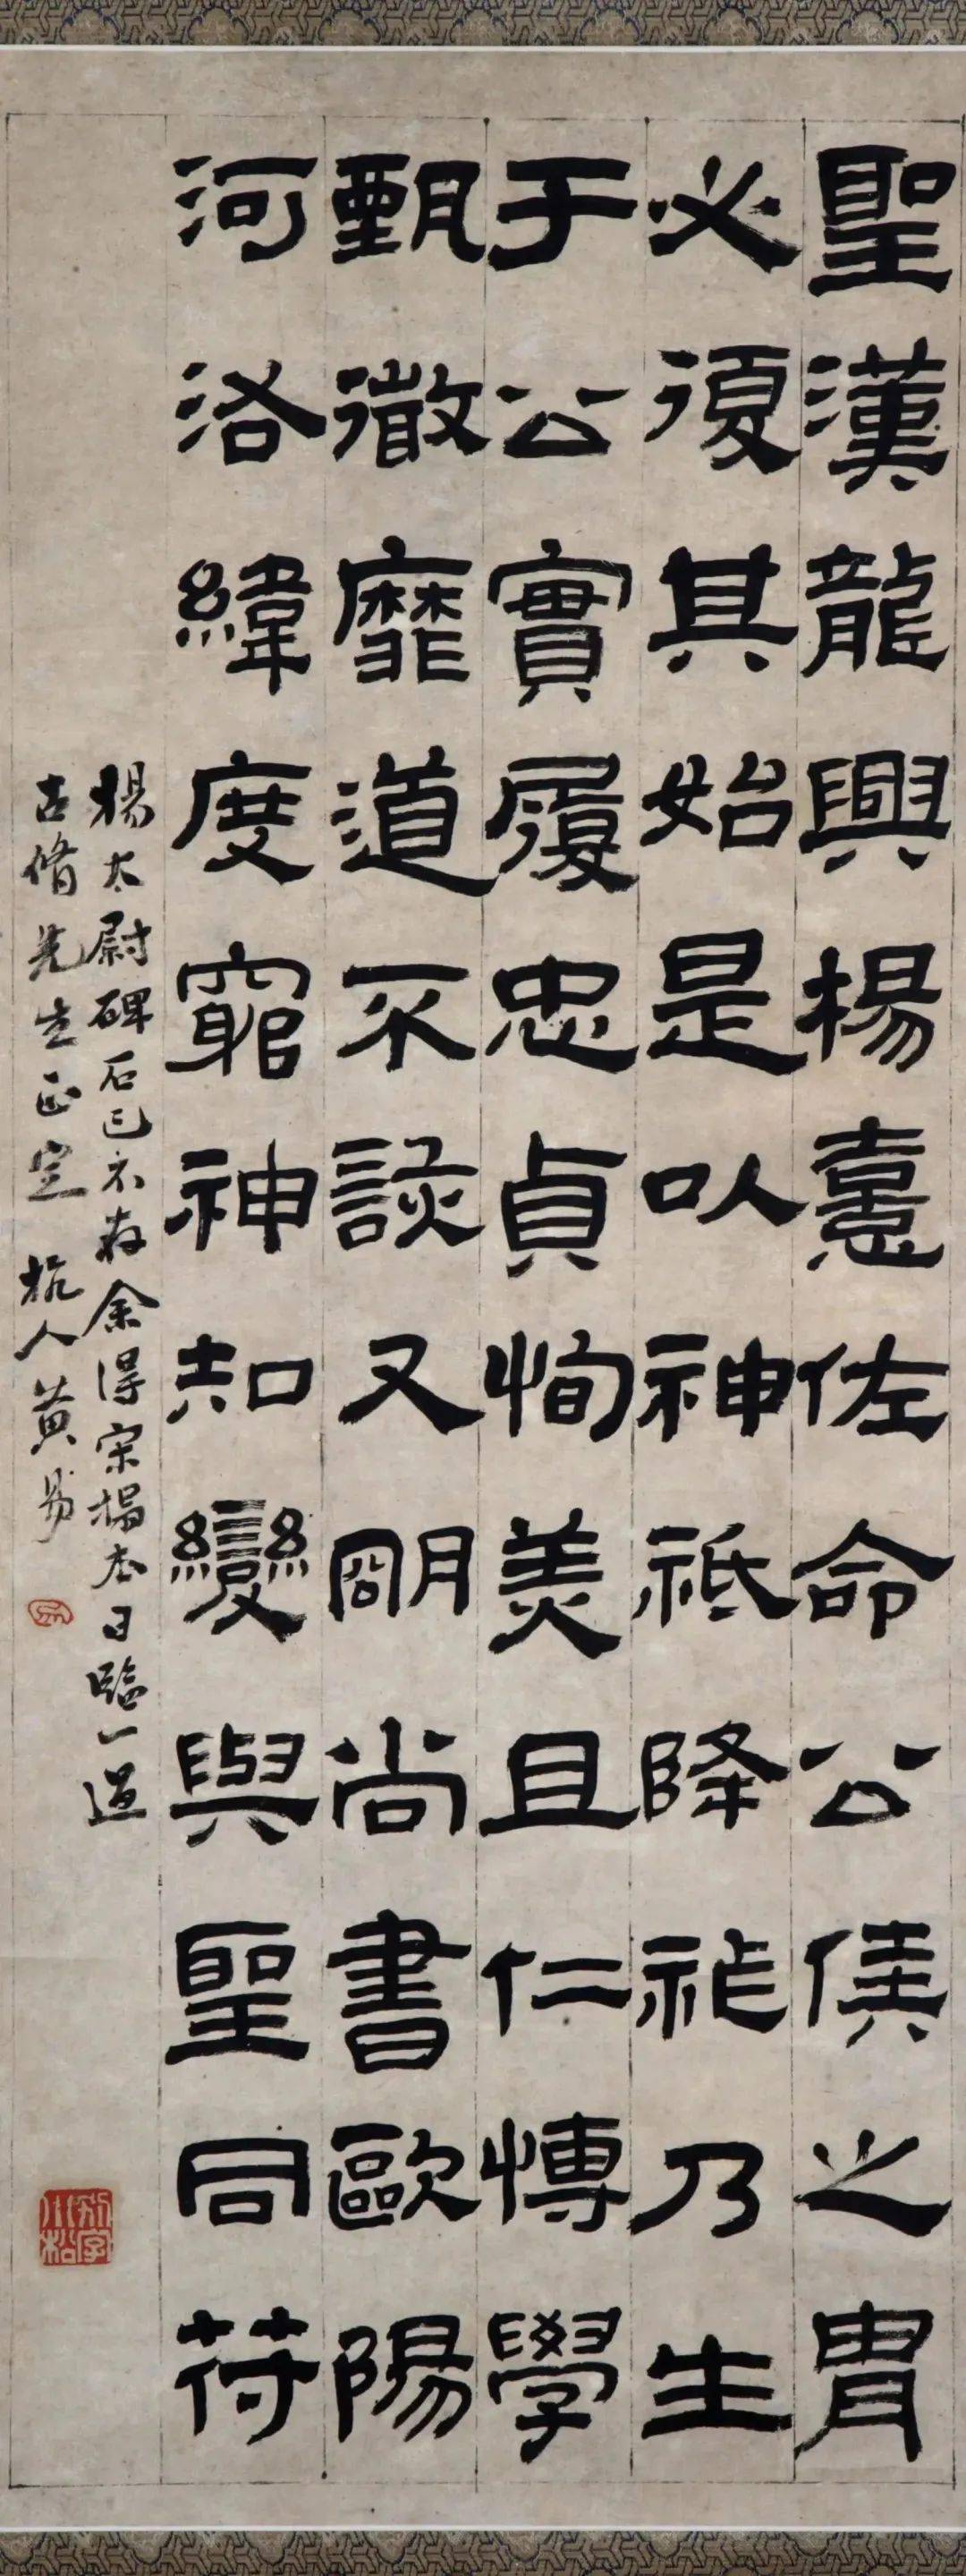 聖漢龍興楊憙佐命公侯之胄
必復其始是以神祇降祉乃生
于公實履忠貞恂美且仁博學
甄徹靡道不該又明尚書歐陽
河洛緯度窮神知變與聖同符
楊太尉碑石已不存余得宋搨本日臨一過
古脩先生正定 杭人黃易
小松